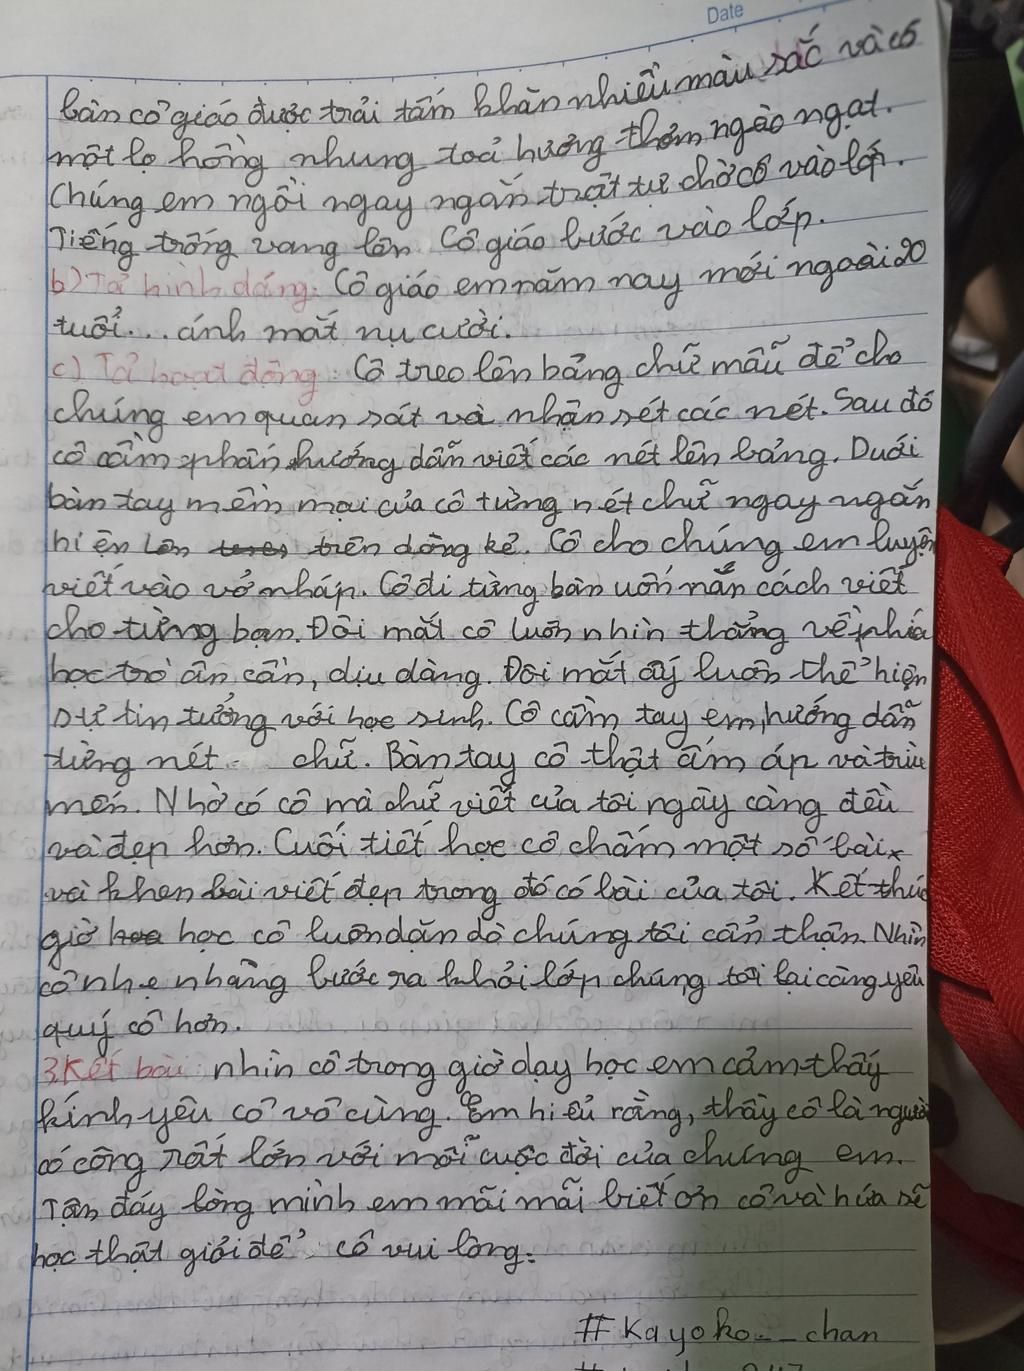 Date
bàn cô giáo được trải tấm khăn nhiều màu sắc và có
một lọ hồng nhung toả hương thơm ngào ngạt.
Chúng em ngồi ngay ngắn trật tự chờ cô vào lớp.
Tiếng trống vang lên Cô giáo bước vào lớp.
b) Tả hình dáng: Cô giáo em năm nay mới ngoài 20
tuổi... ánh mắt nụ cười.
c) Tả hoạt động: Cô treo lên bảng chữ mẫu để cho
chúng em quan sát và nhận sét các nét. Sau đó
cô cầm phấn hướng dẫn viết các nét lên bảng. Dưới
bàn tay mềm mại của cô từng nét chữ ngay ngắn
hiện lên trên dòng kẻ. Cô cho chúng em luyện
viết vào vở nháp. Cô đi từng bàn uốn nắn cách viết
cho từng bạn. Đôi mắt cô luôn nhìn thẳng về phía
học trò ân cần, dịu dàng. Đôi mắt ấy luôn thể hiện
sự tin tưởng với học sinh. Cô cầm tay em, hướng dẫn
từng nét chữ. Bàn tay cô thật ấm áp và trìu
mến. Nhờ có cô mà chữ viết của tôi ngày càng đều
và đẹp hơn. Cuối tiết học cô chấm một số bài
và khen bài viết đẹp trong đó có bài của tôi. Kết thúc
giờ học cô luôn dặn dò chúng tôi cẩn thận. Nhìn
cô nhẹ nhàng bước ra khỏi lớp chúng tôi lại càng yêu
quý cô hơn.
3, Kết bài: nhìn cô trong giờ dạy học em cảm thấy
kính yêu cô vô cùng. Em hiểu rằng, thầy cô là người
có công rất lớn với mỗi cuộc đời của chúng em.
Tận đáy lòng mình em mãi mãi biết ơn cô và hứa sẽ
học thật giỏi để cô vui lòng.
# Kayoko__chan